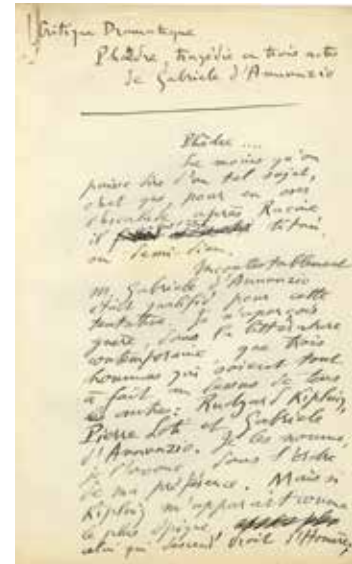 Critique Dramatique
Phèdre, tragédie en trois actes
de Gabriele d'Annunzio
Phèdre ....
Le moins qu'on
puisse dire d'un tel sujet,
c'est que, pour en oser
l'escalade après Racine
il titan
ou demi-dieu.
Incontestablement
M. Gabriele d'Annunzio
était qualifié pour cette
tentative. Je n'aperçois
guère, dans la littérature
contemporaine que trois
hommes qui soient tout
à fait au dessus de tous
les autres: Rudyard Kipling,
Pierre Loti et Gabriele
d'Annunzio. Je les nomme,
je l'avoue dans l'ordre
de ma préférence. Mais si
Kipling m'apparaît comme
le plus épique,
celui qui descend droit d'Homère,